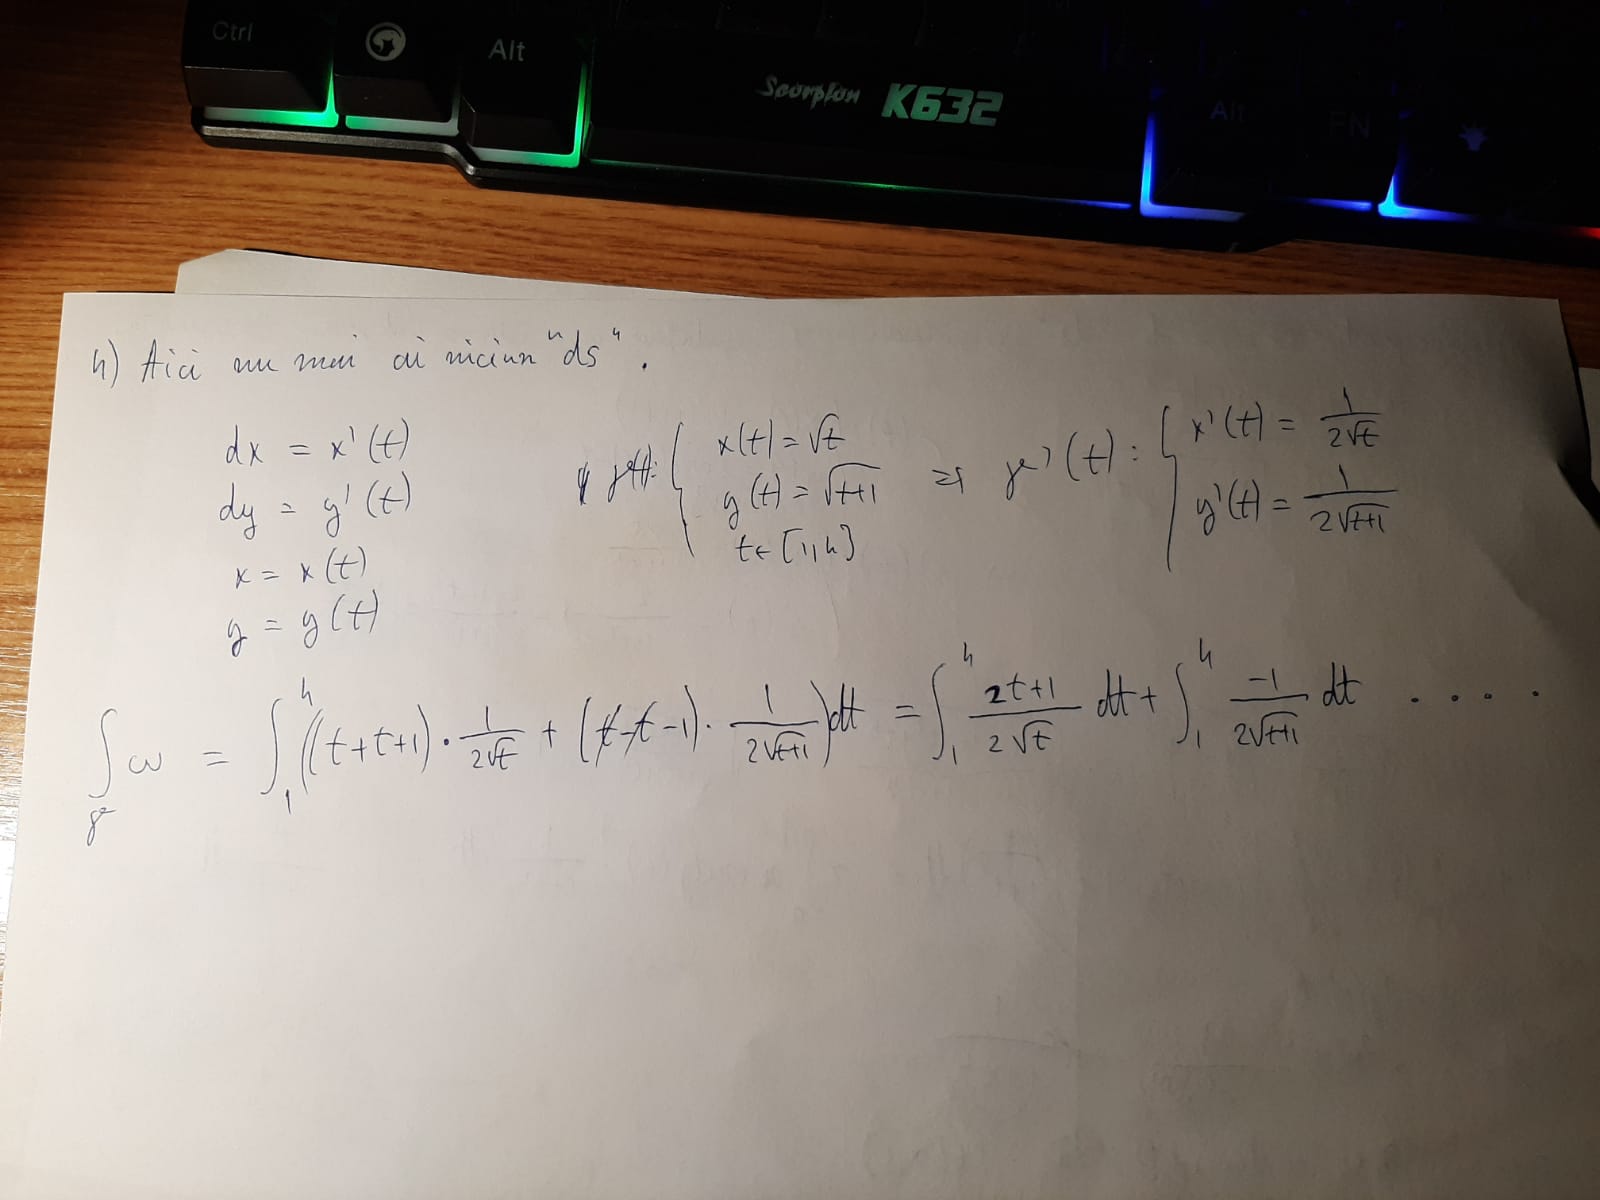 Ctrl
Alt
Scorpion K632
Alt
FN
4) Aici nu mai ai niciun "ds".
dx = x'(t)
dy = y'(t)
x = x(t)
y = y(t)
x(t) = √t
y(t) = √(t+1)
t ∈ [1,4]
⇒ γ'(t): { x'(t) = 1/(2√t)
y'(t) = 1/(2√(t+1))
∫_γ ω = ∫_1^4 ((t+t+1)·1/(2√t) + (t-t-1)·1/(2√(t+1)))dt = ∫_1^4 (2t+1)/(2√t) dt + ∫_1^4 -1/(2√(t+1)) dt ....